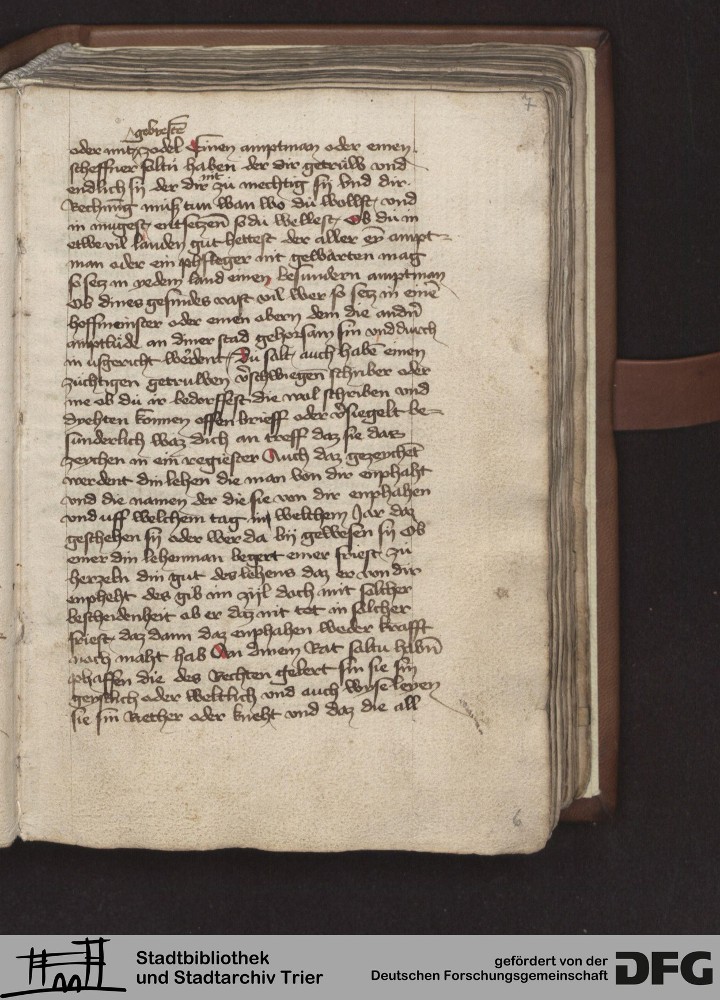 7
gebreste
oder mit zodel Einen amptman oder einen
scheffner saltu haben der dir getruw vnd
endlich sij der dir nit zu mechtig sij vnd dir
Rechnung muß tun wan wo du wollest vnd
in mugest entsetzen so du wellest Ob du in
etwe vil landen gut hettest der aller ein ampt=
man oder ein phfleger nit gewarten mag
so setz in yedem land einen besundern amptman
Ob dines gesindes vast vil wer so setz in eine
hoffmeinster oder einen obern dem die andn
amptlude an diner stad gehorsam sin vnd durch
in usgericht werdent Du salt auch habe einen
zuchtigen getruwen vschwiegen schriber oder
me ob du ir bedorffest die wol schriben vnd
dychten konnen offen brieff oder vsiegelt be=
sunderlich waz dich an treff daz sie daz
zeychen in ein regiester Auch daz gezeychet
werdent din lehen die man von dir enphaht
vnd die namen der die sie von dir enphahen
vnd uff welchem tag in welchem Jar daz
geschehen sij oder wer da bij gewesen sij Ob
einer din lehenman begert einer friest zu
herzeln din gut des lehens daz er von dir
enpheht des gib im zijl doch mit salcher
bescheidenheit ob er daz nit tet in salcher
friest daz dann daz enphahen weder krafft
noch maht hab An dinem Rat saltu habn
phaffen die des Rechten gelert sin sie sin
geystlich oder weltlich vnd auch wyse leyen
sie sin Riether oder kneht vnd daz die all
6
Stadtbibliothek
und Stadtarchiv Trier
gefördert von der
Deutschen Forschungsgemeinschaft
DFG